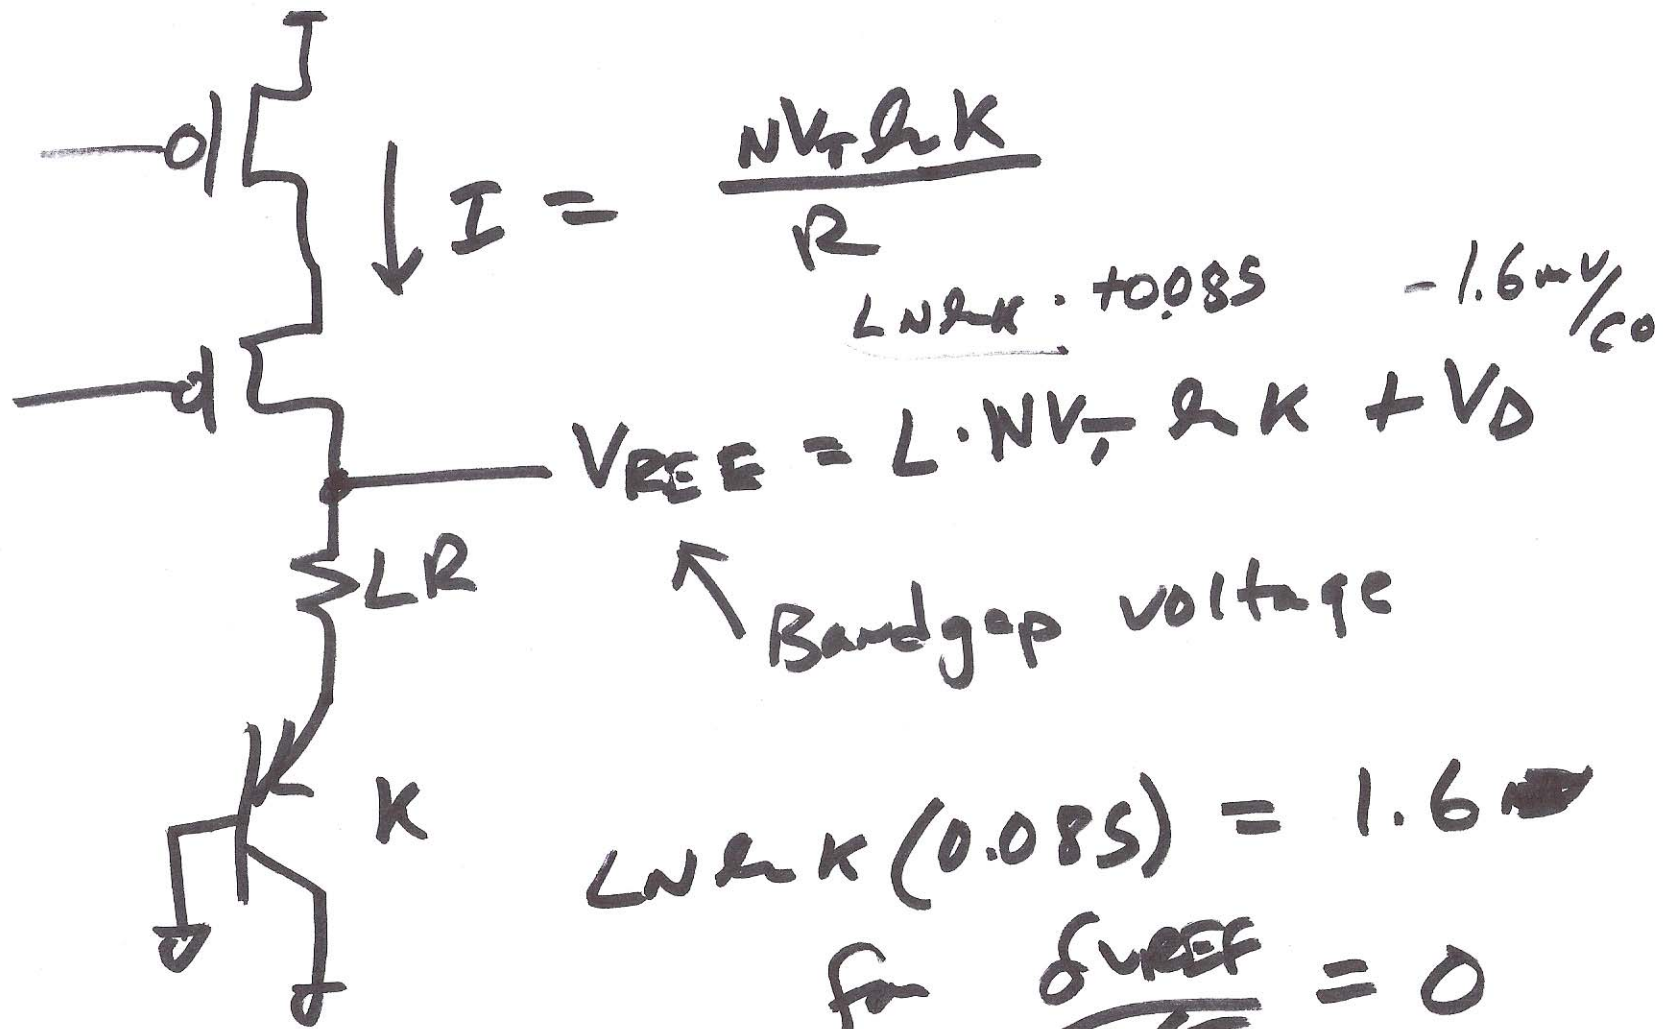 I = NV_T ln K / R
LN ln K · +0.085   -1.6 mV/C°
V_REF = L·NV_T ln K + V_D
LR
Bandgap voltage
K
LN ln K (0.085) = 1.6
for δVREF = 0